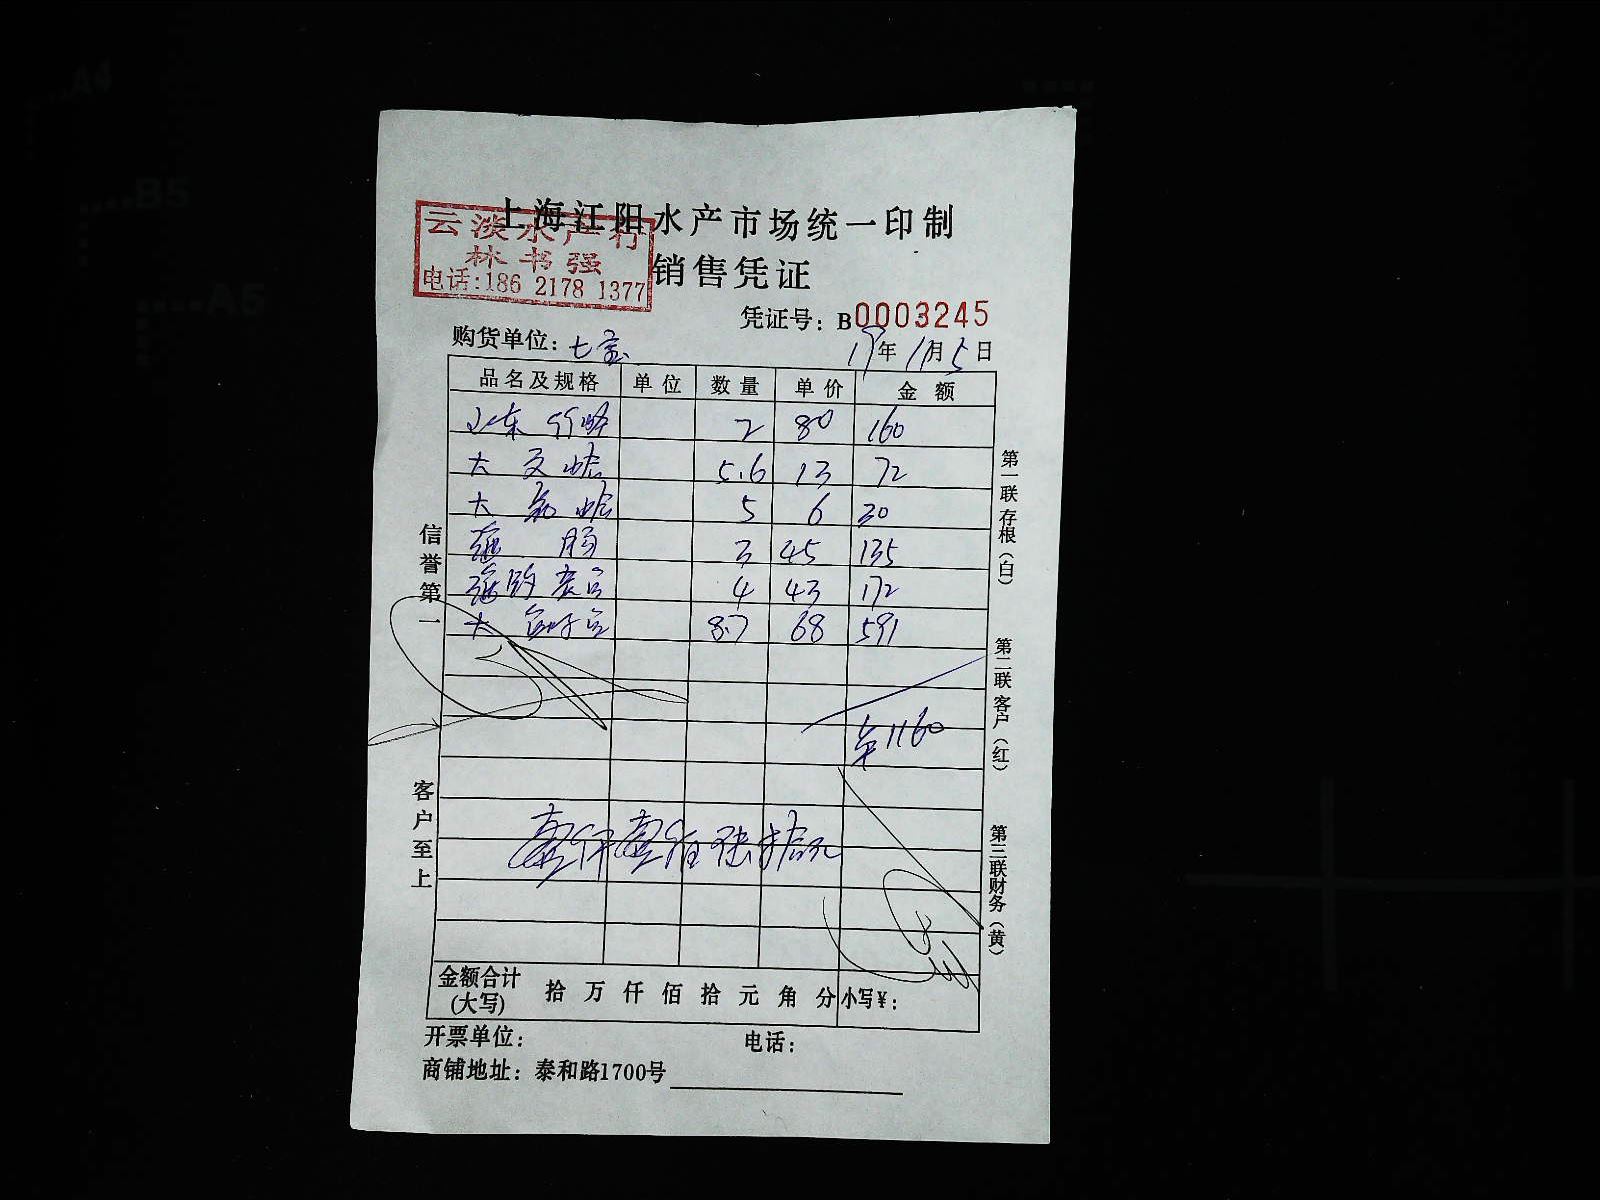 上海江阳水产市场统一印制
云淡水产行
林书强
电话:186 2178 1377
销售凭证
凭证号: B0003245
购货单位: 七宝
19年11月5日
品名及规格 单位 数量 单价 金额
山东 2 80 160
大 文蛤 5.6 13 72
大 花蛤 5 6 30
3 45 135
4 43 172
大 8.7 68 591
1160
壹仟壹佰陆拾元
信誉第一
客户至上
第一联存根(白)
第二联客户(红)
第三联财务(黄)
金额合计(大写) 拾 万 仟 佰 拾 元 角 分 小写¥:
开票单位: 电话:
商铺地址: 泰和路1700号
A4
B5
A5